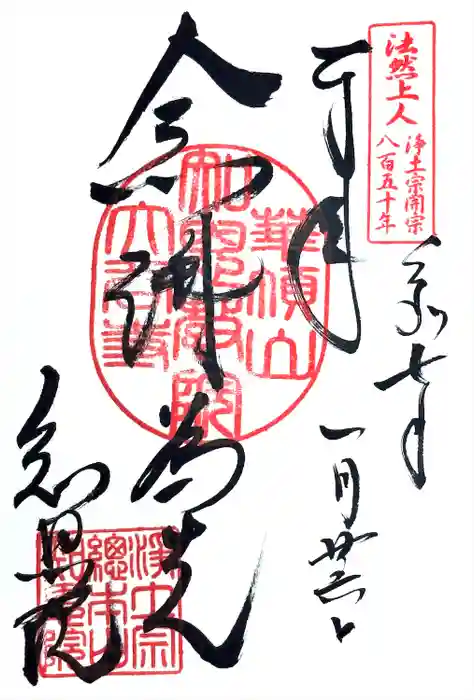 法然上人
浄土宗開宗
八百五十年
令和七年
一月
念佛為先
知恩院
華頂山
知恩教院
大谷寺
浄土宗
總本山
知恩院